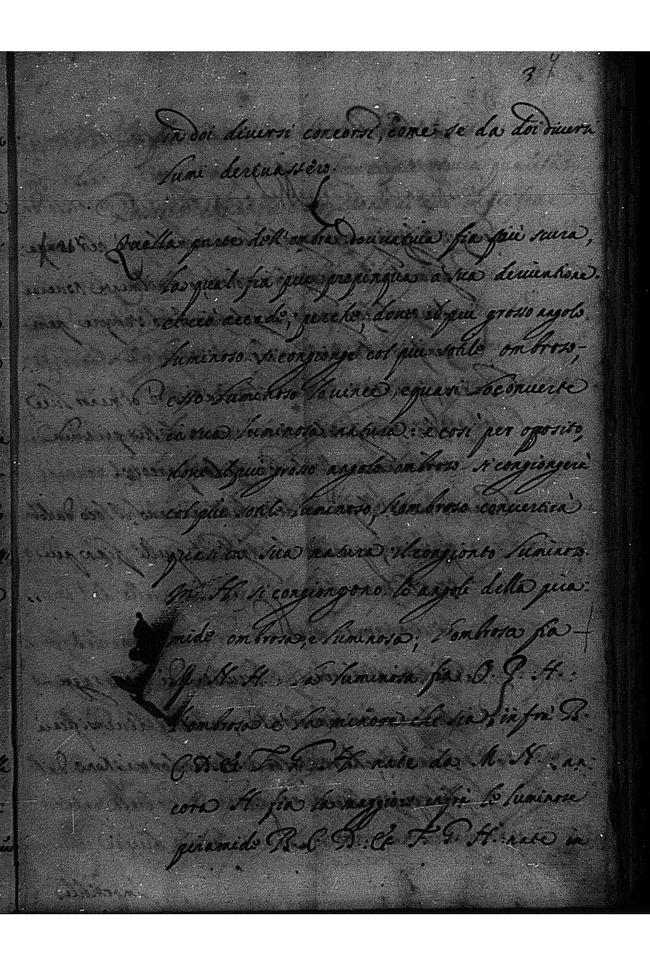 37
in doi diversi concorsi, come se da doi diversi
lumi derivassero.
Quella parte dell'ombra dirivativa fia più scura,
la qual fia piu propinqua a sua derivatione.
et ciò accade, perche, dove il piu grosso angolo
luminoso si congionge col piu sotile ombroso,
esso luminoso lo vince, e quasi lo converte
in sua luminosa natura: e così per oposito,
dove il piu grosso angolo ombroso si congiongerà
col piu sotile luminoso, l'ombroso convertirà
quasi in sua natura, il congionto luminoso.
In H. si congiongono le angoli della pira:
mide ombrosa, e luminosa; l'ombrosa fia
M. N. H. la luminosa fia O. P. H.
l'ombrosa e la minore che sia, infra B.
C. D. E. F. G. H. nate da M. N. an:
cora H. fia la maggiore infra le luminose
piramide B. C. D. E. F. G. H. nate in